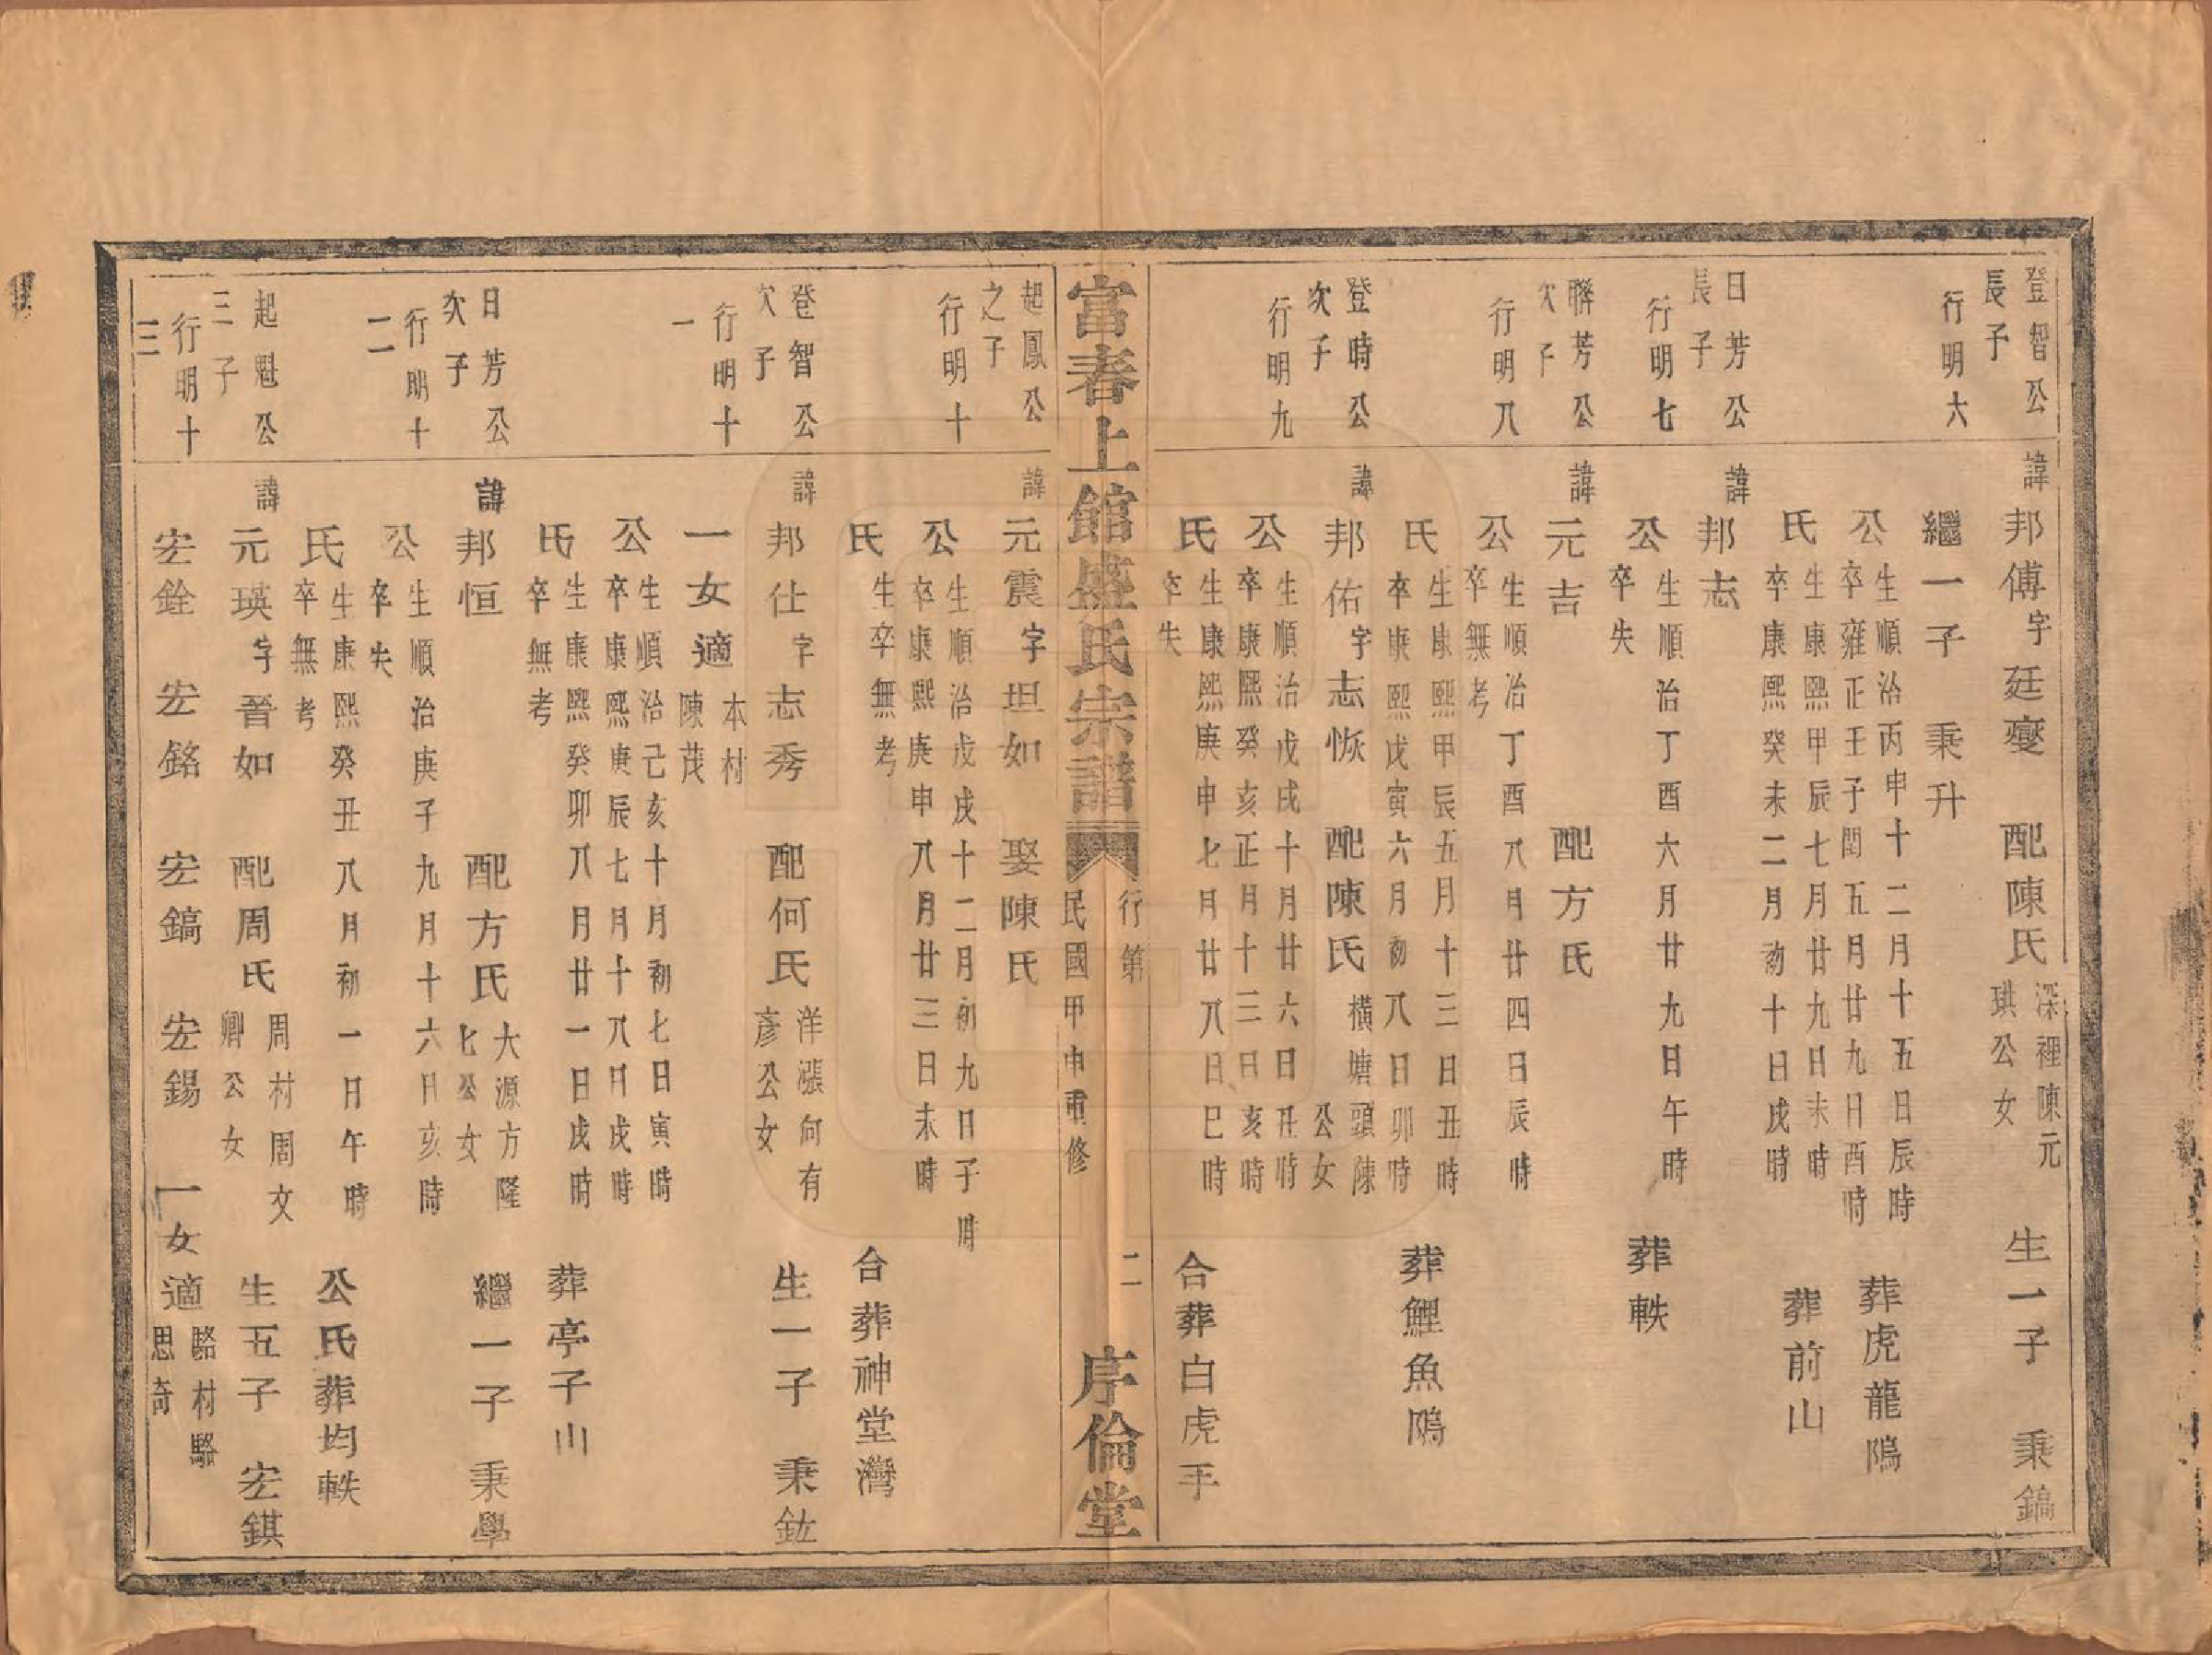 登智公
長子
行明六
諱
邦傅字廷燮
配陳氏
深裡陳元
琪公女
生一子
秉鎬
繼一子
秉升
公
生順治丙申十二月十五日辰時
卒雍正壬子閏五月廿九日酉時
葬虎龍隝
氏
生康熙甲辰七月廿九日未時
卒康熙癸未二月初十日戌時
葬前山
日芳公
長子
行明七
諱
邦志
公
生順治丁酉六月廿九日午時
卒失
葬軼
聯芳公
次子
行明八
諱
元吉
配方氏
公
生順治丁酉八月廿四日辰時
卒無考
氏
生康熙甲辰五月十三日丑時
卒康熙戊寅六月初八日卯時
葬鯉魚隝
登時公
次子
行明九
諱
邦佑字志恢
配陳氏
橫塘頭陳
公女
公
生順治戊戌十月廿六日丑時
卒康熙癸亥正月十三日亥時
氏
生康熙庚申七月廿八日巳時
卒失
合葬白虎手
富春上館盛氏宗譜
行第
二
民國甲申重修
序倫堂
起鳳公
之子
行明十
諱
元震字坦如
娶陳氏
公
生順治戊戌十二月初九日子時
卒康熙庚申八月廿三日未時
氏
生卒無考
合葬神堂灣
登智公
次子
行明十
一
諱
邦仕字志秀
配何氏
洋漲何有
彥公女
生一子
秉鈜
一女適
本村
陳茂
公
生順治己亥十月初七日寅時
卒康熙庚辰七月十八日戌時
氏
生康熙癸卯八月廿一日戌時
卒無考
葬亭子山
日芳公
次子
行明十
二
諱
邦恒
配方氏
大源方隆
七公女
繼一子
秉學
公
生順治庚子九月十六日亥時
卒失
氏
生康熙癸丑八月初一日午時
卒無考
公氏葬均軼
起魁公
三子
行明十
三
諱
元瑛字晉如
配周氏
周村周文
卿公女
生五子
宏錤
宏銓
宏銘
宏鎬
宏錫
一女適
駱村駱
思奇